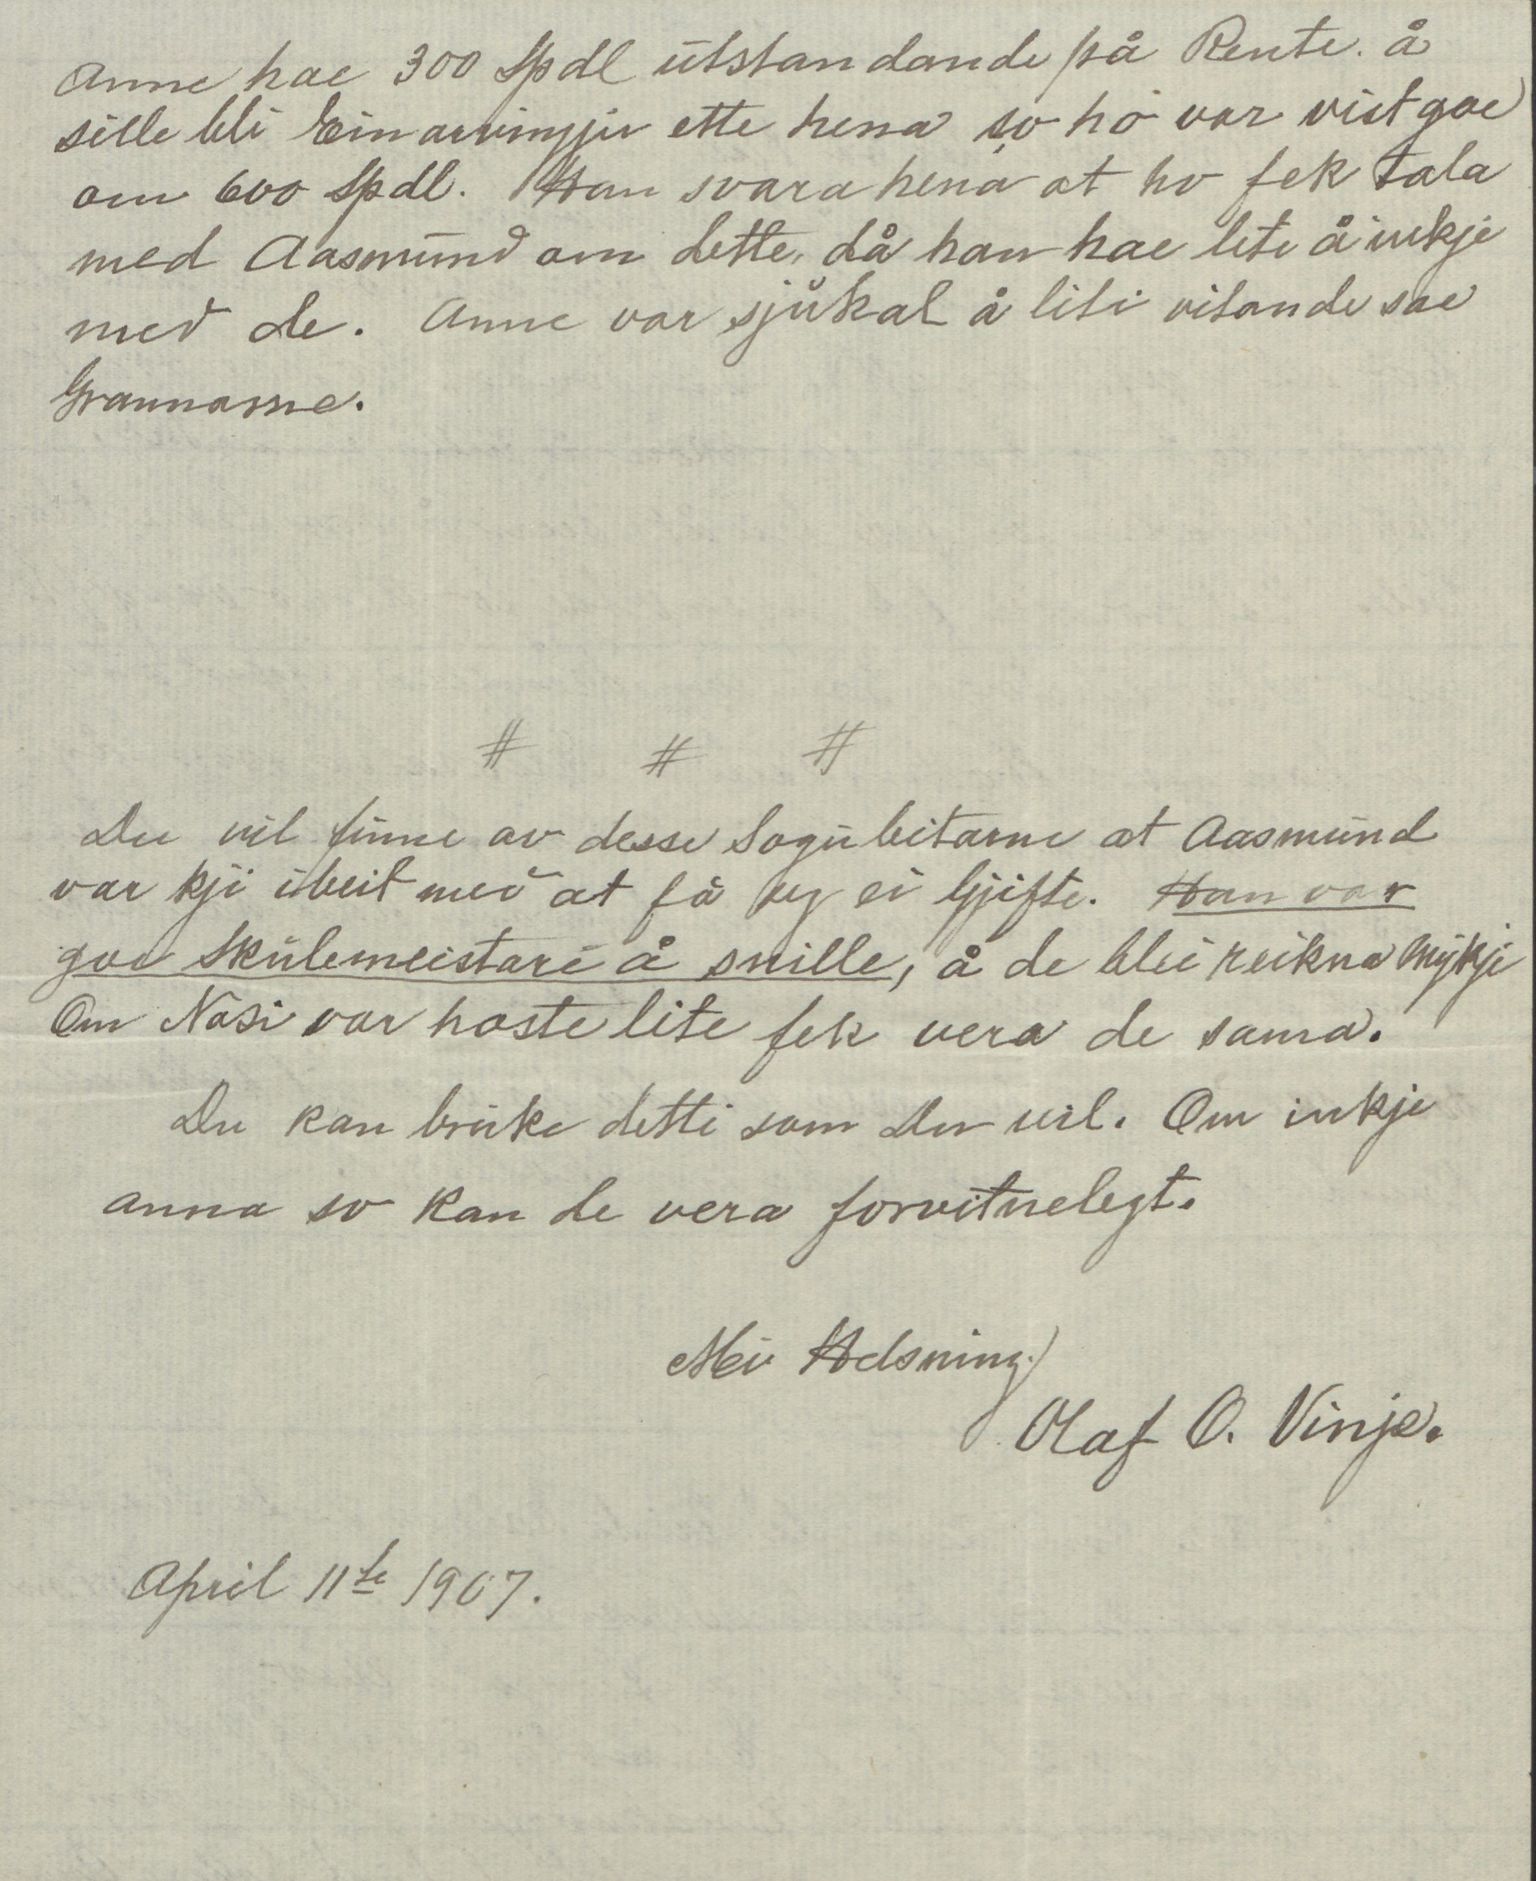 Anne hae 300 Spdl utstandande på Rente. å
sille bli Einarvingjir ette hena so ho var vist goe
om 600 Spdl. Han svara hena at ho fek tala
med Aasmund om dette, då han hae lite å inkje
med de. Anne var sjukal å liti vitande sae
Grannasne.
# # #
Du vil finne av desse Sogubitarne at Aasmund
var kji ibeit med at få seg ei Gjifte. Han var
goe Skulemeistare å snille, å de blei reikna mykji
Om Nosi var haste lite fek vera de sama.
Du kan bruke detti som Du vil. Om inkje
anna so kan de vera forvitnelegt.
Mei Helsning
Olaf O. Vinje.
April 11te 1907.